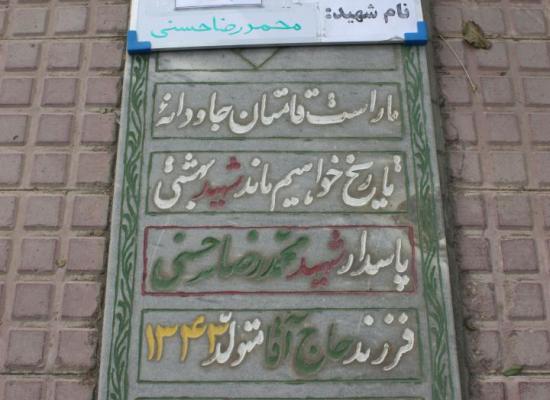 نام شهید:
محمد رضا حسنی
ما راست قامتان جاودانهٔ
تاریخ خواهیم ماند شهید بهشتی
پاسدار شهید محمد رضا حسنی
فرزند حاج آقا متولد ۱۳۴۲